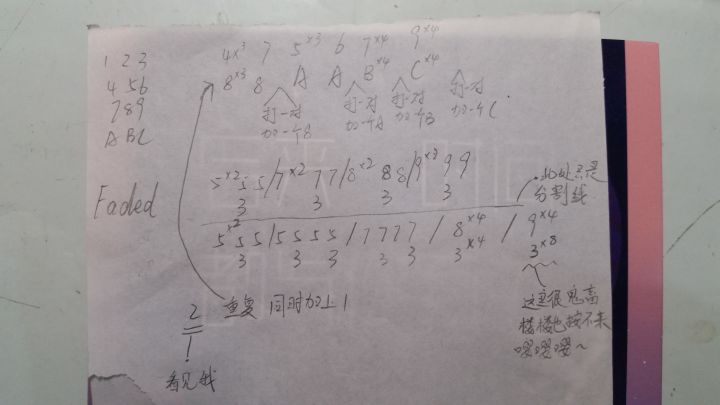 1 2 3
4 5 6
7 8 9
A B C
Faded
4×3 7 5×3 6 7×4 9×4
8×3 8 A A B×4 C×4
打一对 打一对 打一对 打一对
加一个8 加一个A 加一个B 加一个C.
5×2 5 5/7×2 7 7/8×2 8 8/9×2 9 9
3 3 3 3
此处只是
分割线
5×2 5 5/5 5 5 5/7 7 7 7/8×4/9×4
3 3 3 3 3 3×4 3×8
重复 同时加上1
2
看见我
这里很鬼高
楼楼也按不来
嘤嘤嘤~